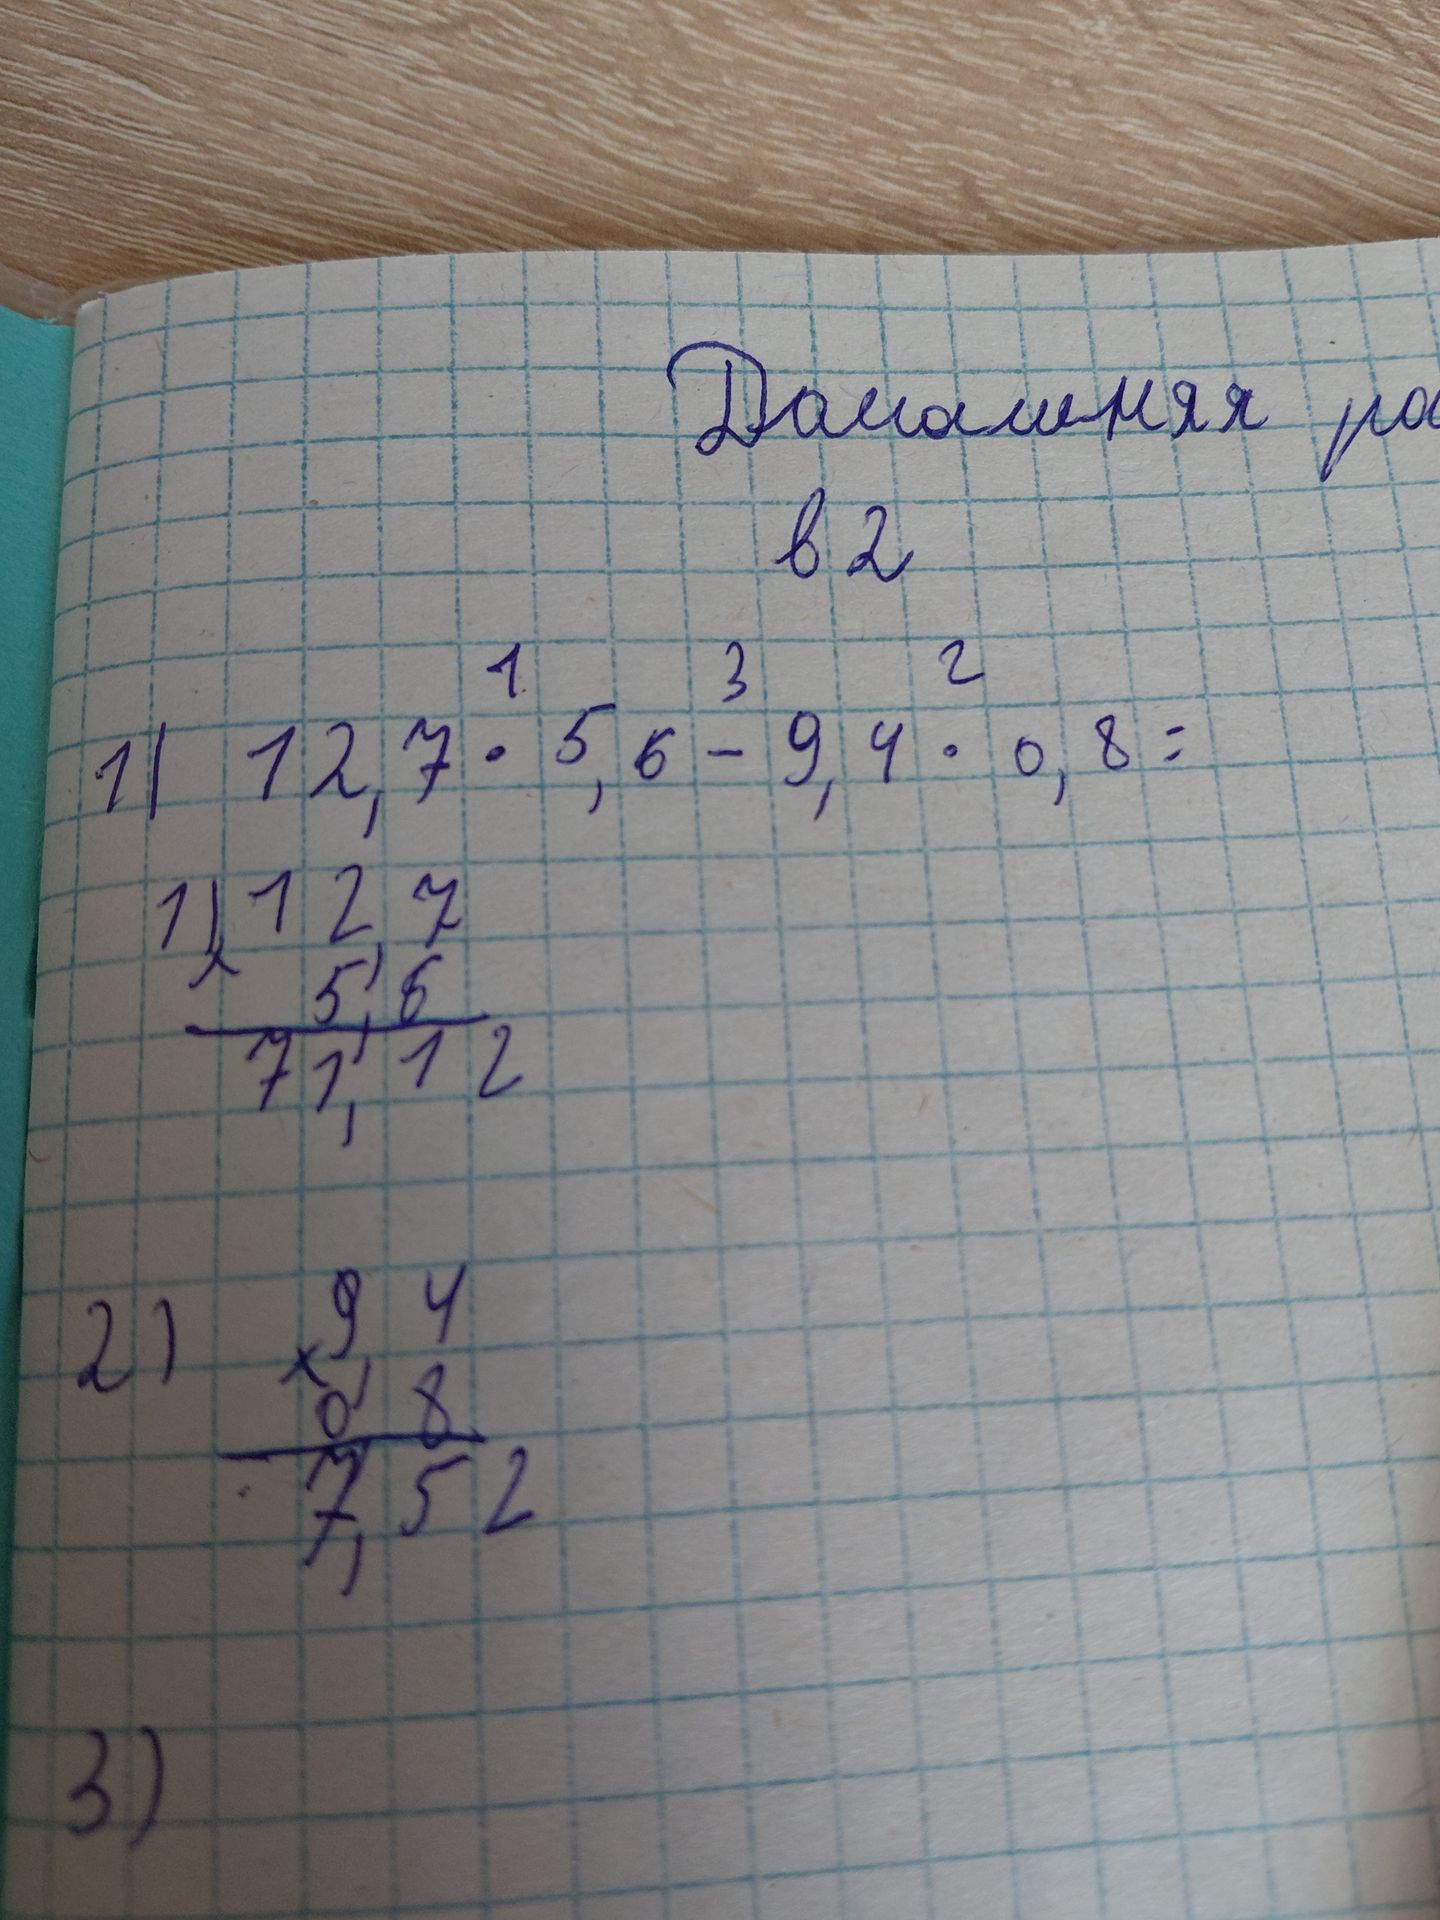 Домашняя ра
в 2
1 3 2
1) 12,7 · 5,6 - 9,4 · 0,8 =
1) 12,7
×
5,6
71,12
2) 9,4
×
0,8
7,52
3)